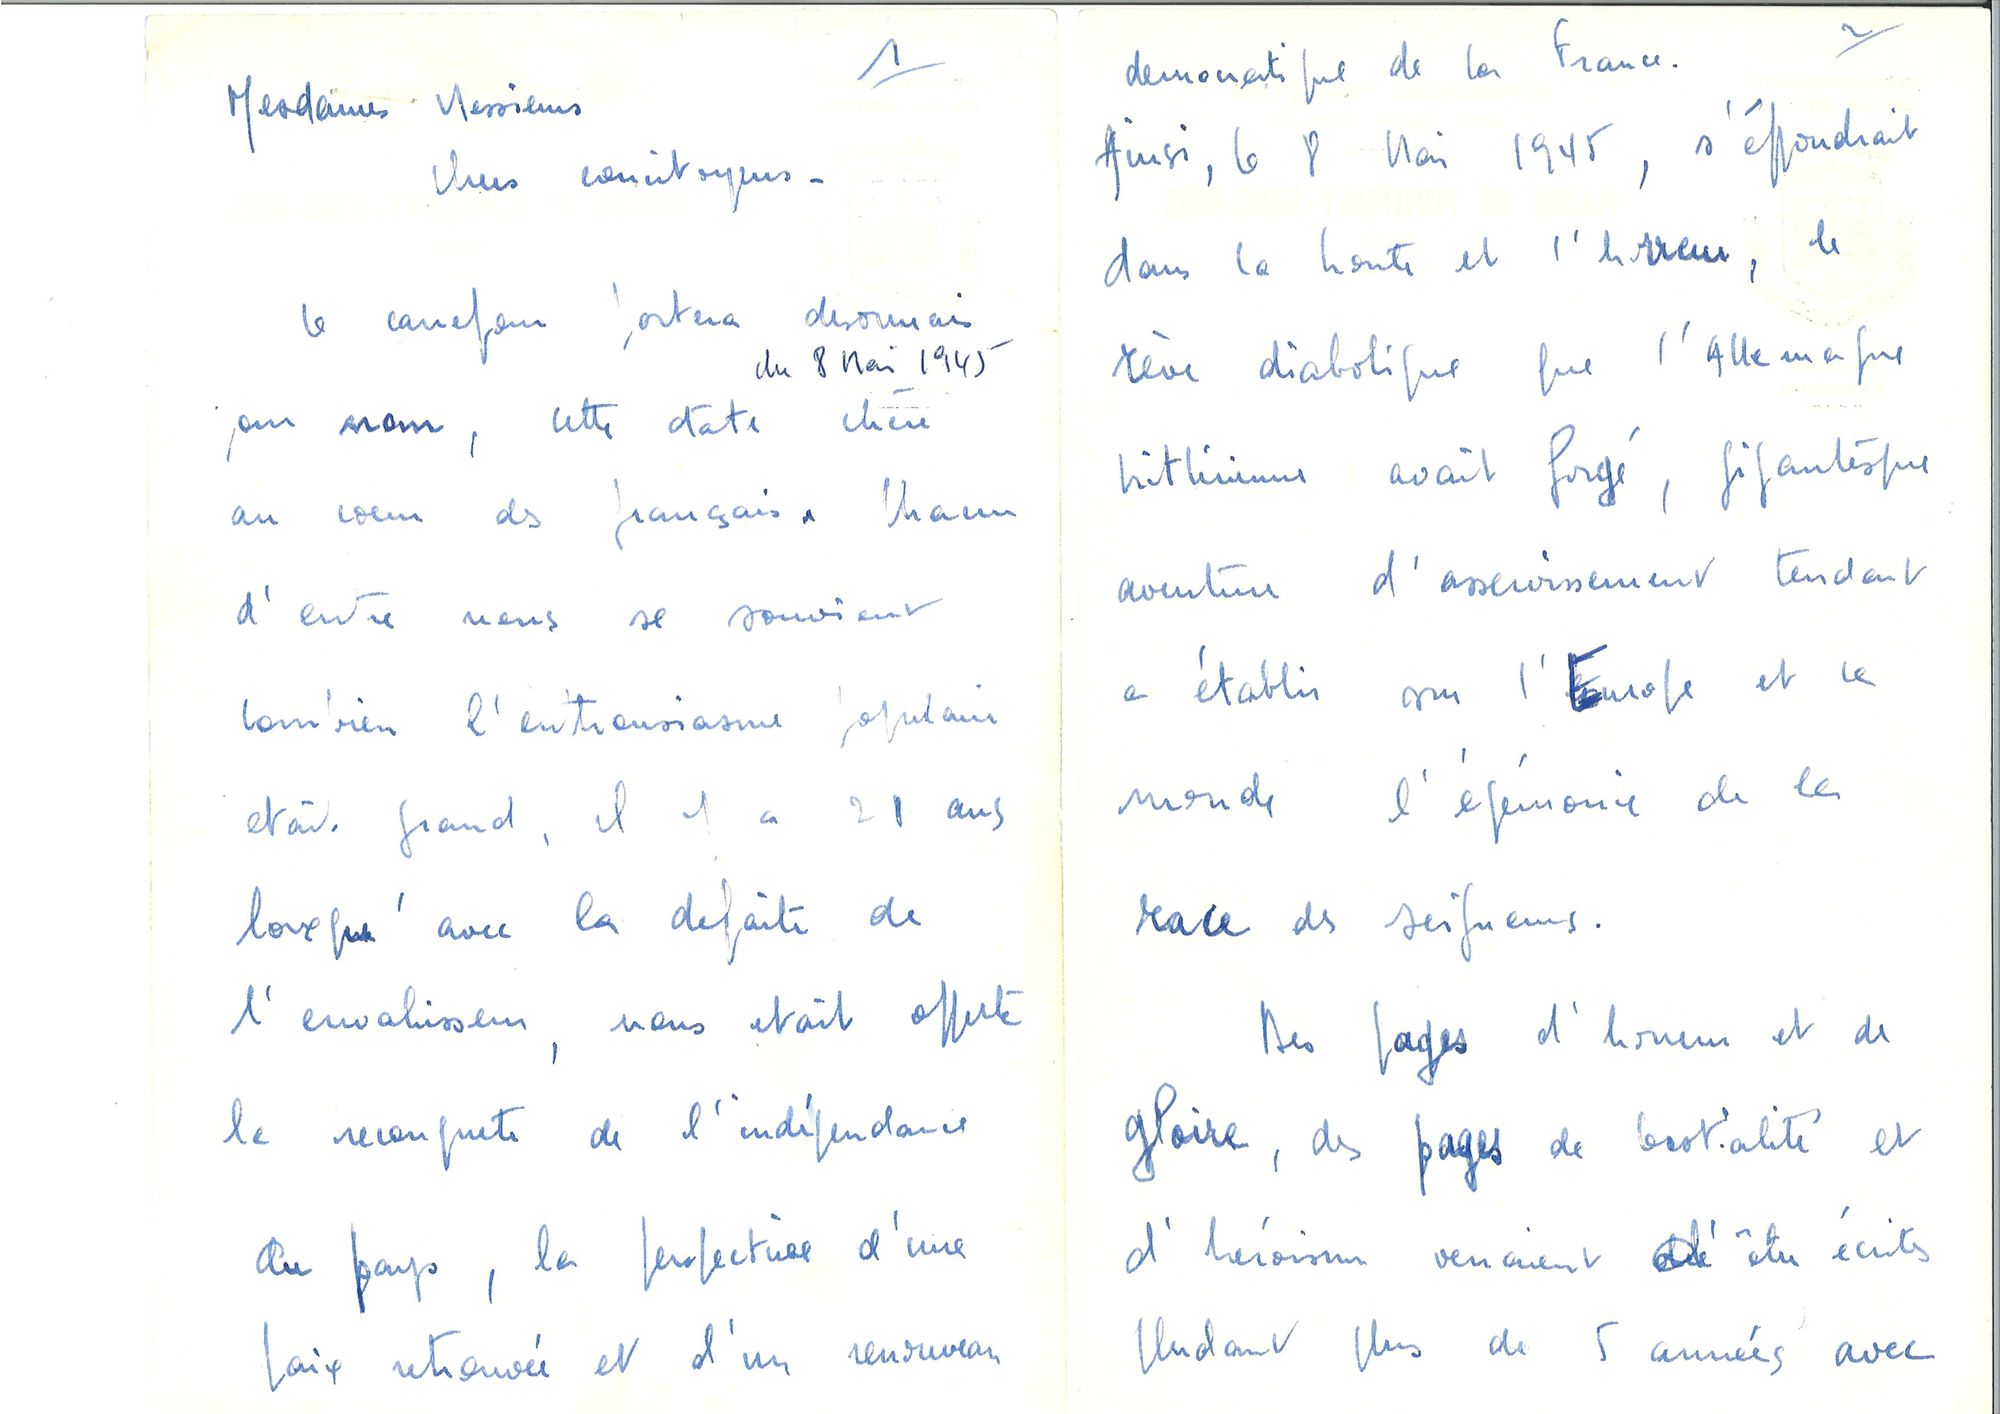 1
Mesdames Messieurs
Chers concitoyens -
le carrefour portera desormais
du 8 Mai 1945
pour nom, cette date chère
au coeur des français. Chacun
d'entre nous se souvient
combien l'enthousiasme populaire
etait grand, il y a 21 ans
lorsque avec la defaite de
l'envahisseur, nous etait offerte
la reconquete de l'indépendance
du pays, la perspective d'une
paix retrouvée et d'un renouveau
2
democratique de la France.
Ainsi, le 8 Mai 1945, s'éffondrait
dans la honte et l'horreur, le
rêve diabolique que l'Allemagne
hitlérienne avait forgé, gigantesque
aventure d'asservissement tendant
a établir sur l'Europe et le
monde l'égémonie de la
race des seigneurs.
Des pages d'honneur et de
gloire, des pages de bestialité et
d'heroisme venaient d'être écrites
pendant plus de 5 années avec